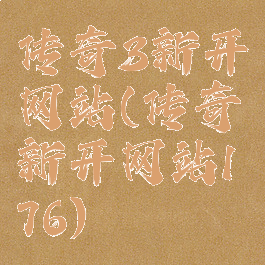 传奇3新开
网站(传奇
新开网站1
76)